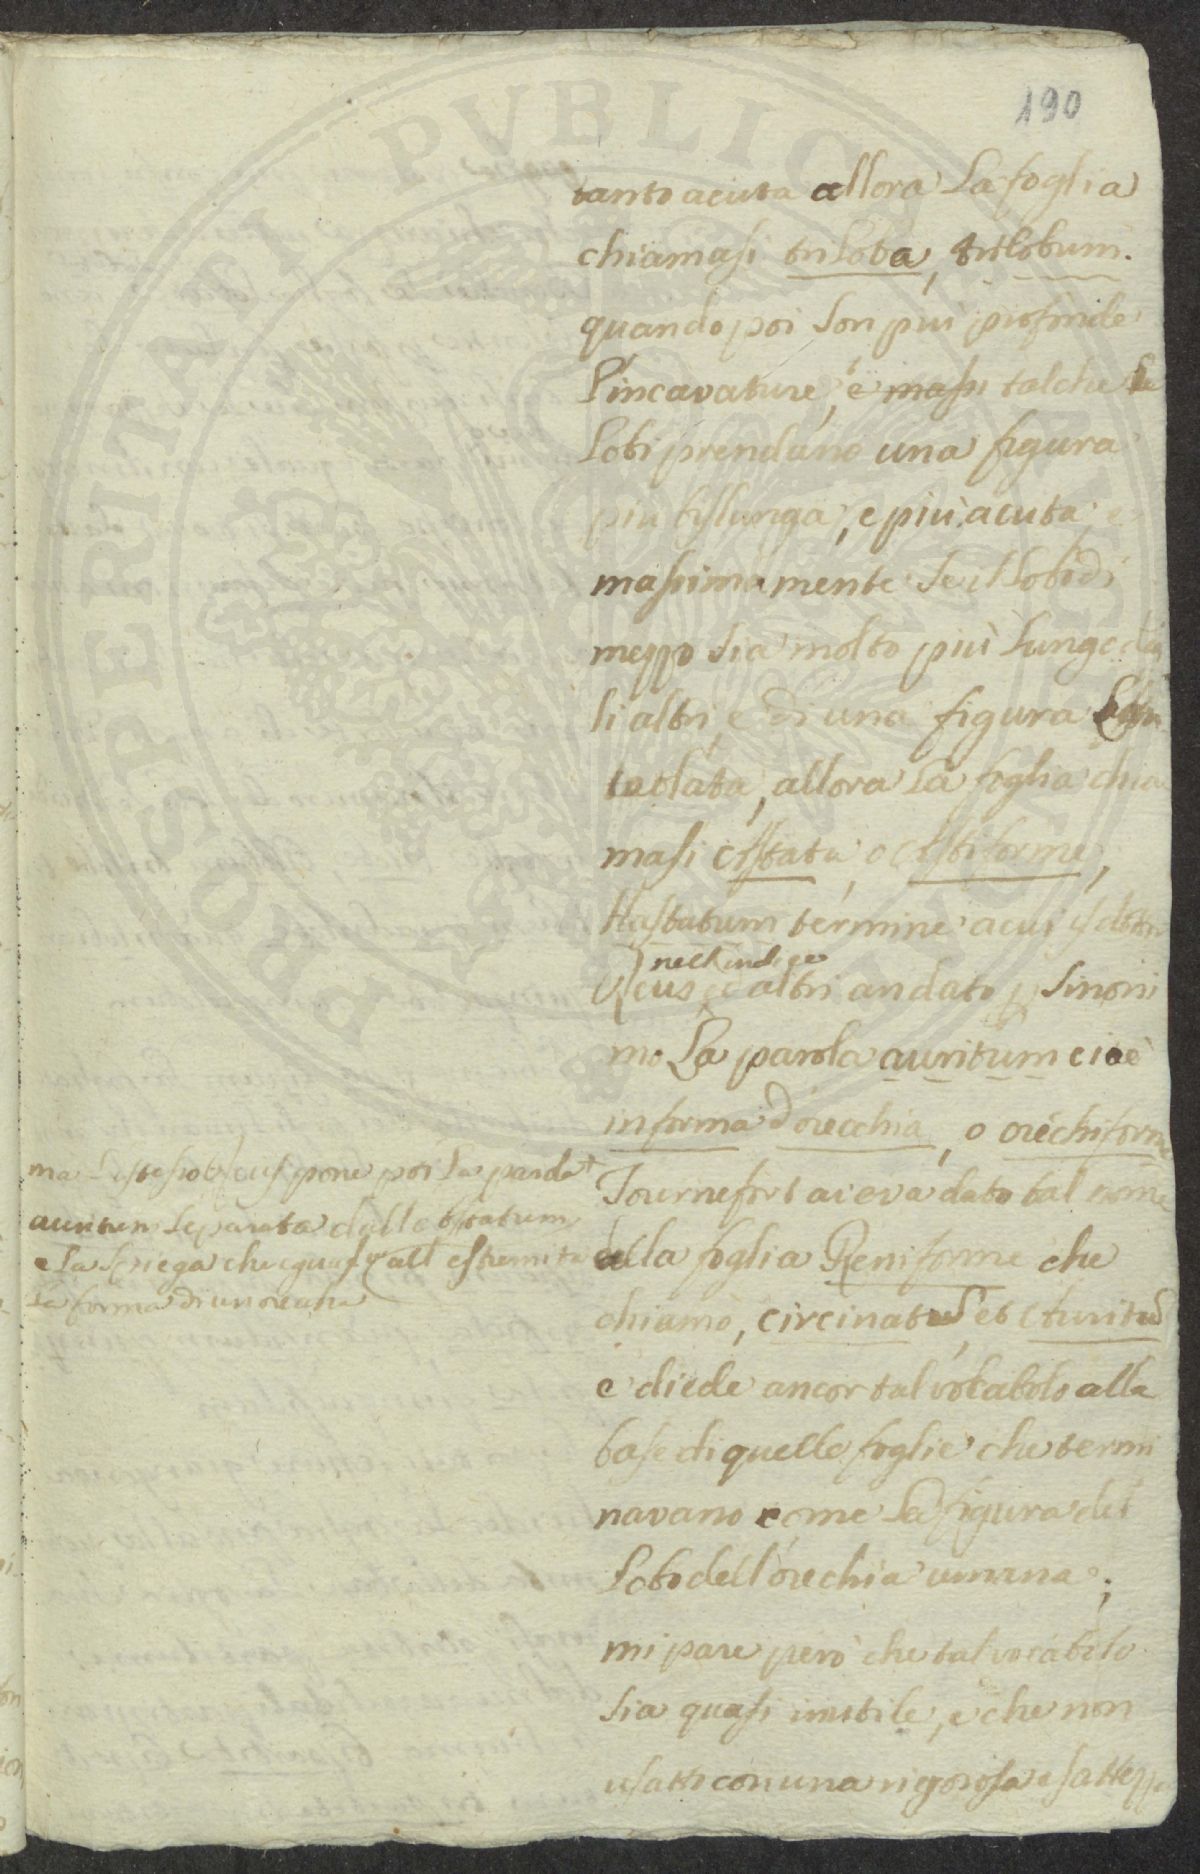 190
tanto acuta allora la foglia
chiamasi triloba, trilobum.
quando poi son più profonde
l'incavature, e massi talche le
lobi prendano una figura
più bislunga, e più acuta e
massimamente se il lobo di
mezzo sia molto più lungo da
li altri, e di una figura
allora la foglia chia
masi astata, o astiforme,
Hastatum termine a cui
nell'indice
altri an dato p sinoni
mo la parola auritum cioè
in forma d'orecchia, o orechiforme
Tournefort aveva dato tal nome
alla foglia Reniforme che
chiamò, circinatum, et Auritum
e diede ancor tal vocabolo alla
base di quelle foglie che termi
navano come la figura del
lobo dell'orechia umana;
mi pare però che tal vocabolo
sia quasi inutile, e che non
usato con una rigorosa esattezza
ma l'istesso pone poi la parola
auritum separata dall'astatum
e la spiega che all'estremita
la forma di un orechia
PROSPERITATI PVBLICAE